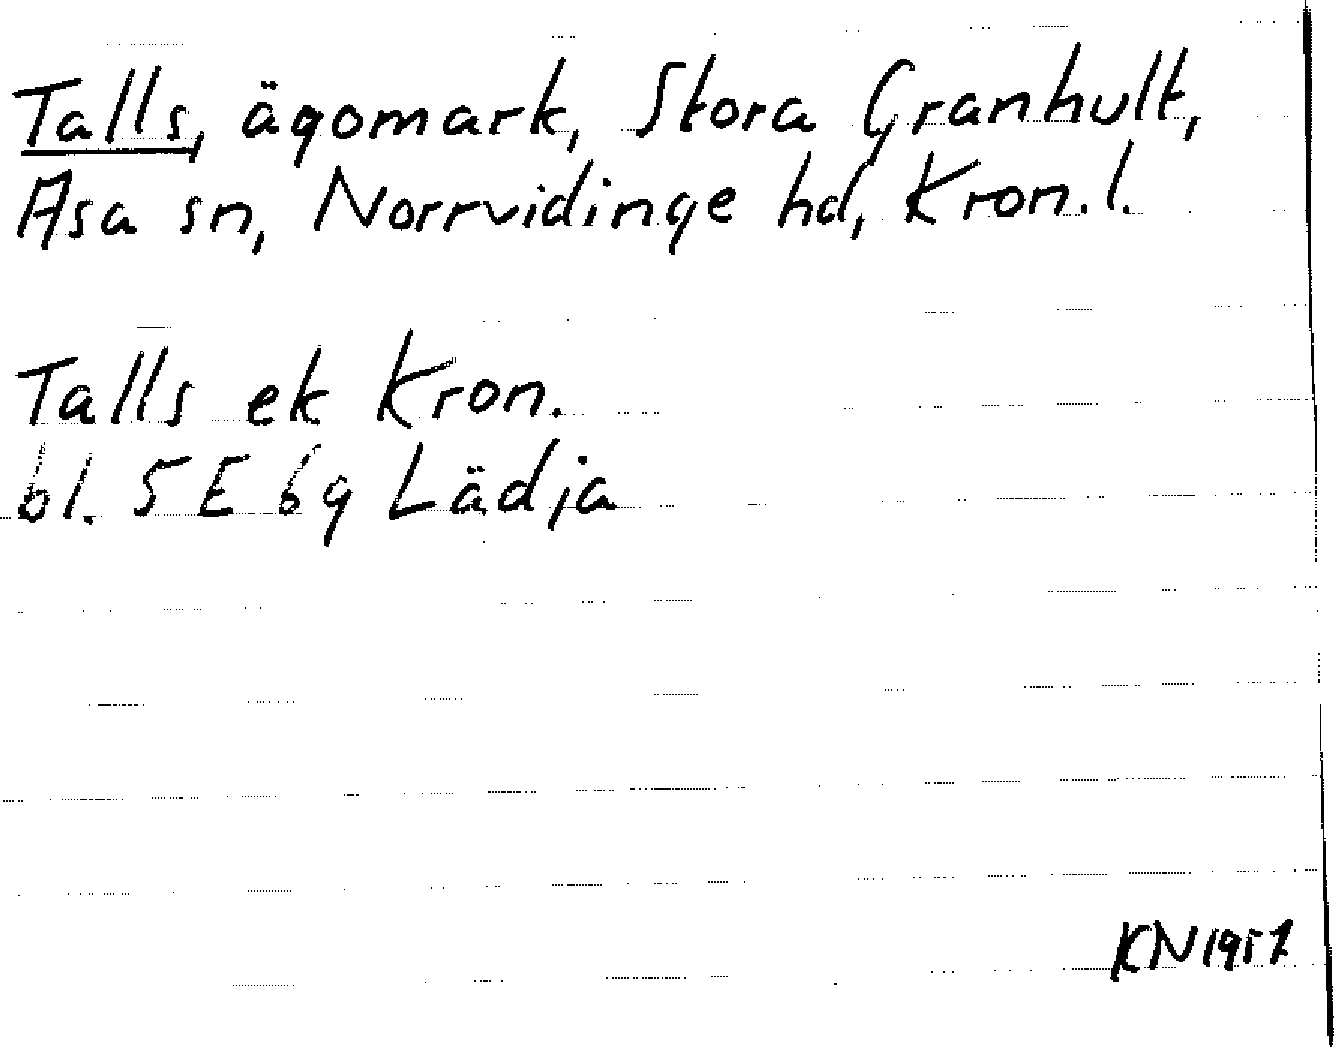 Talls, ägomark, Stora Granhult,
Asa sn, Norrvidinge hd, Kron.l.
Talls ek Kron.
bl. 5 E 6g Lädja
KN1957